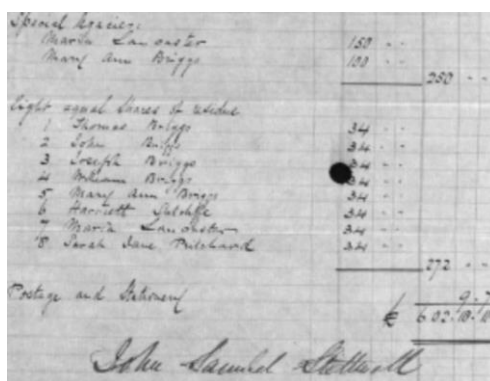 Special legacies:
Maria Lancaster 150 - -
Mary Ann Briggs 100 - -
250 - -
Eight equal shares of residue
1 Thomas Briggs 34 - -
2 John Briggs 34 - -
3 Joseph Briggs 34 - -
4 William Briggs 34 - -
5 Mary Ann Briggs 34 - -
6 Harriett Sutcliffe 34 - -
7 Maria Lancaster 34 - -
8 Sarah Jane Pritchard 34 - -
272 - -
Postage and Stationery 9 - 7
£ 602 - 10 -
John Samuel